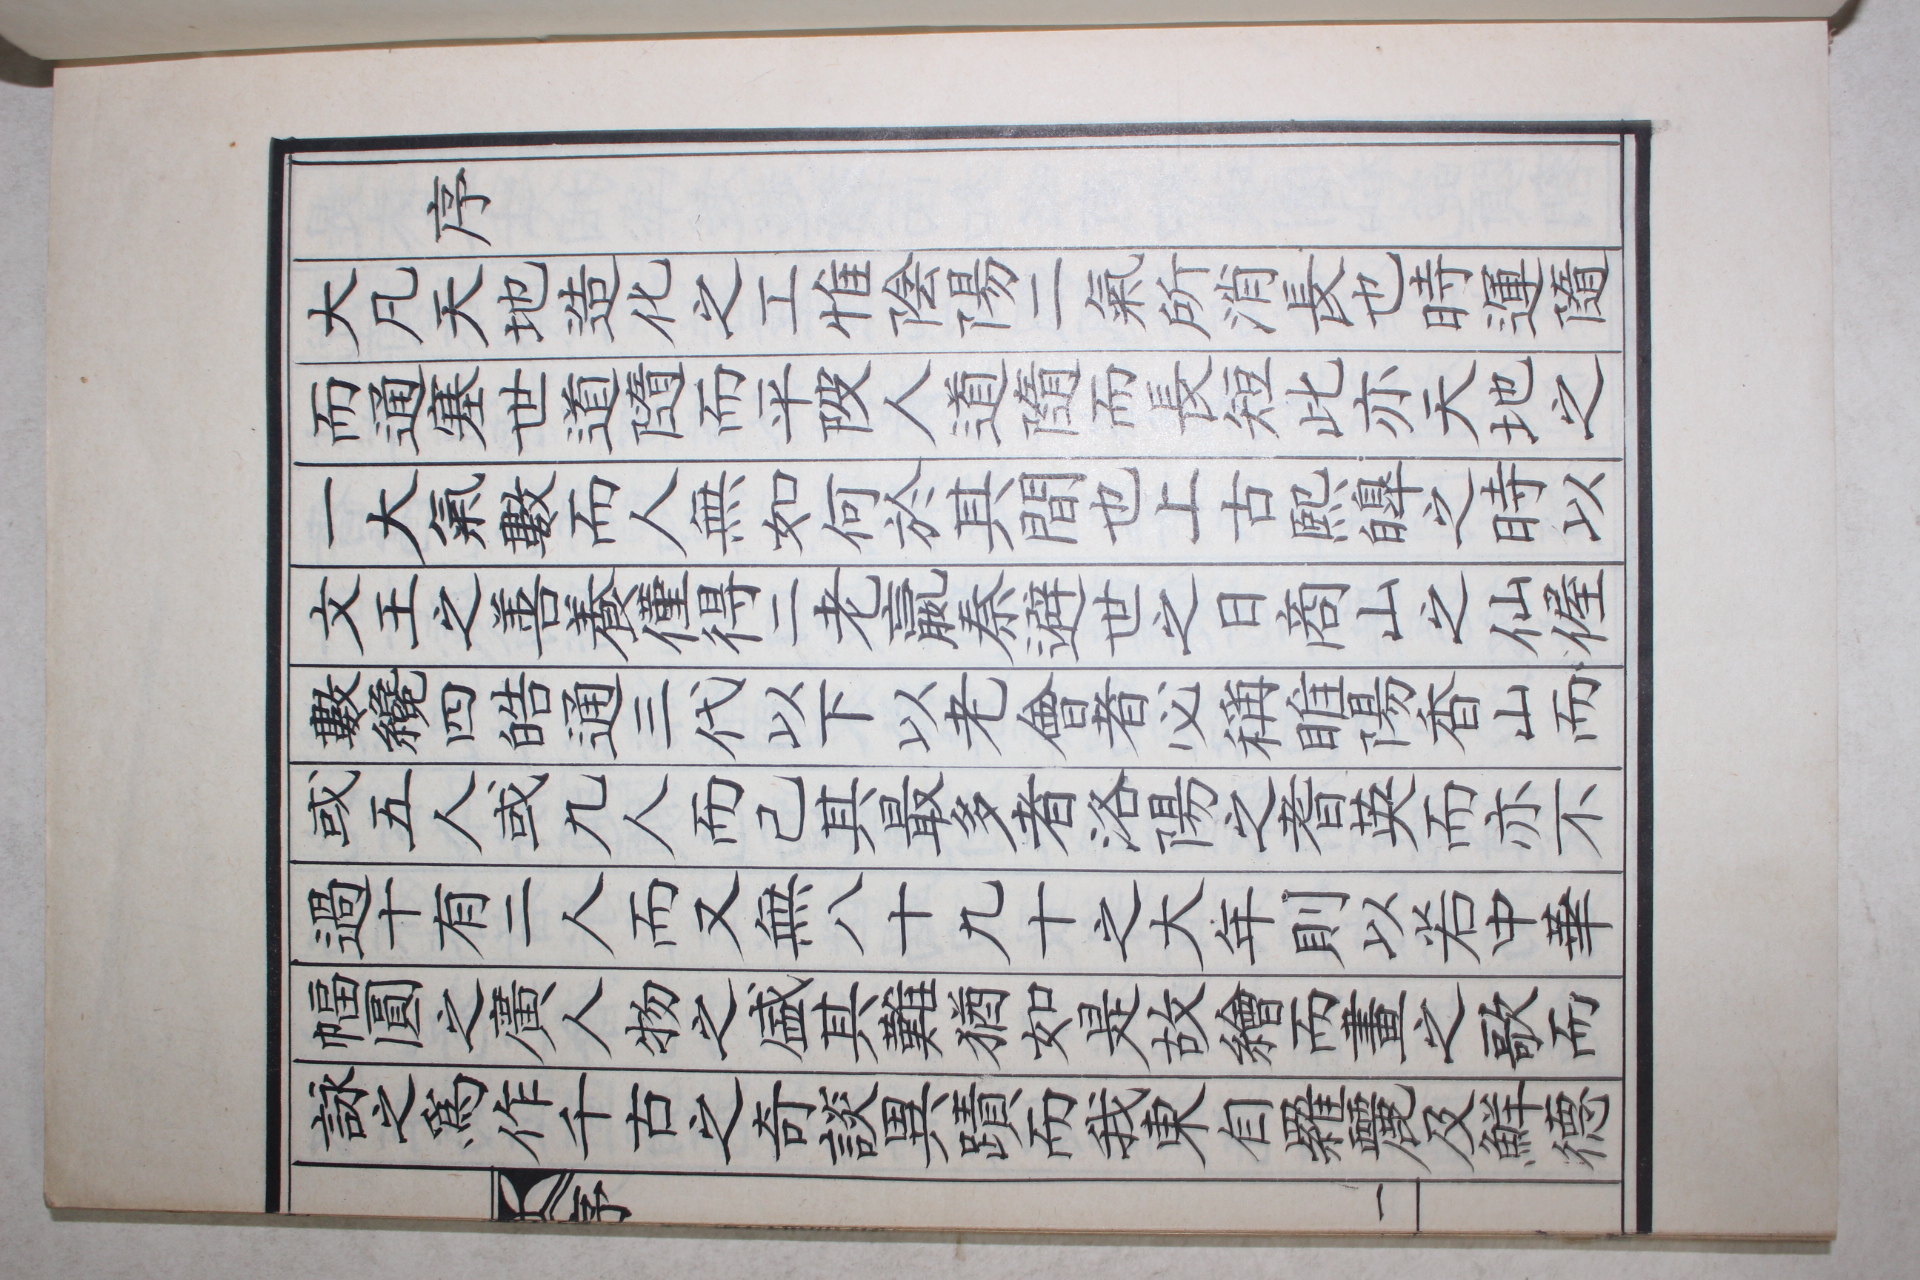 序
大凡天地造化之工惟陰陽二氣所消長也時運隨
而通塞世道隨而平陂人道隨而長短此亦天地之
一大氣數而人無如何於其間也上古熙皞之時以
文王之善養僅得二老嬴秦遯世之日商山之仙偓
數纔四皓通三代以下以老會者必稱睢陽香山而
或五人或九人而己其最多者洛陽之耆英而亦不
過十有二人而又無八十九十之大年則以若中華
幅圓之廣人物之盛其難猶如是故繪而畫之歌而
詠之爲作千古之奇談異蹟而我東自羅麗及鮮德
序 一